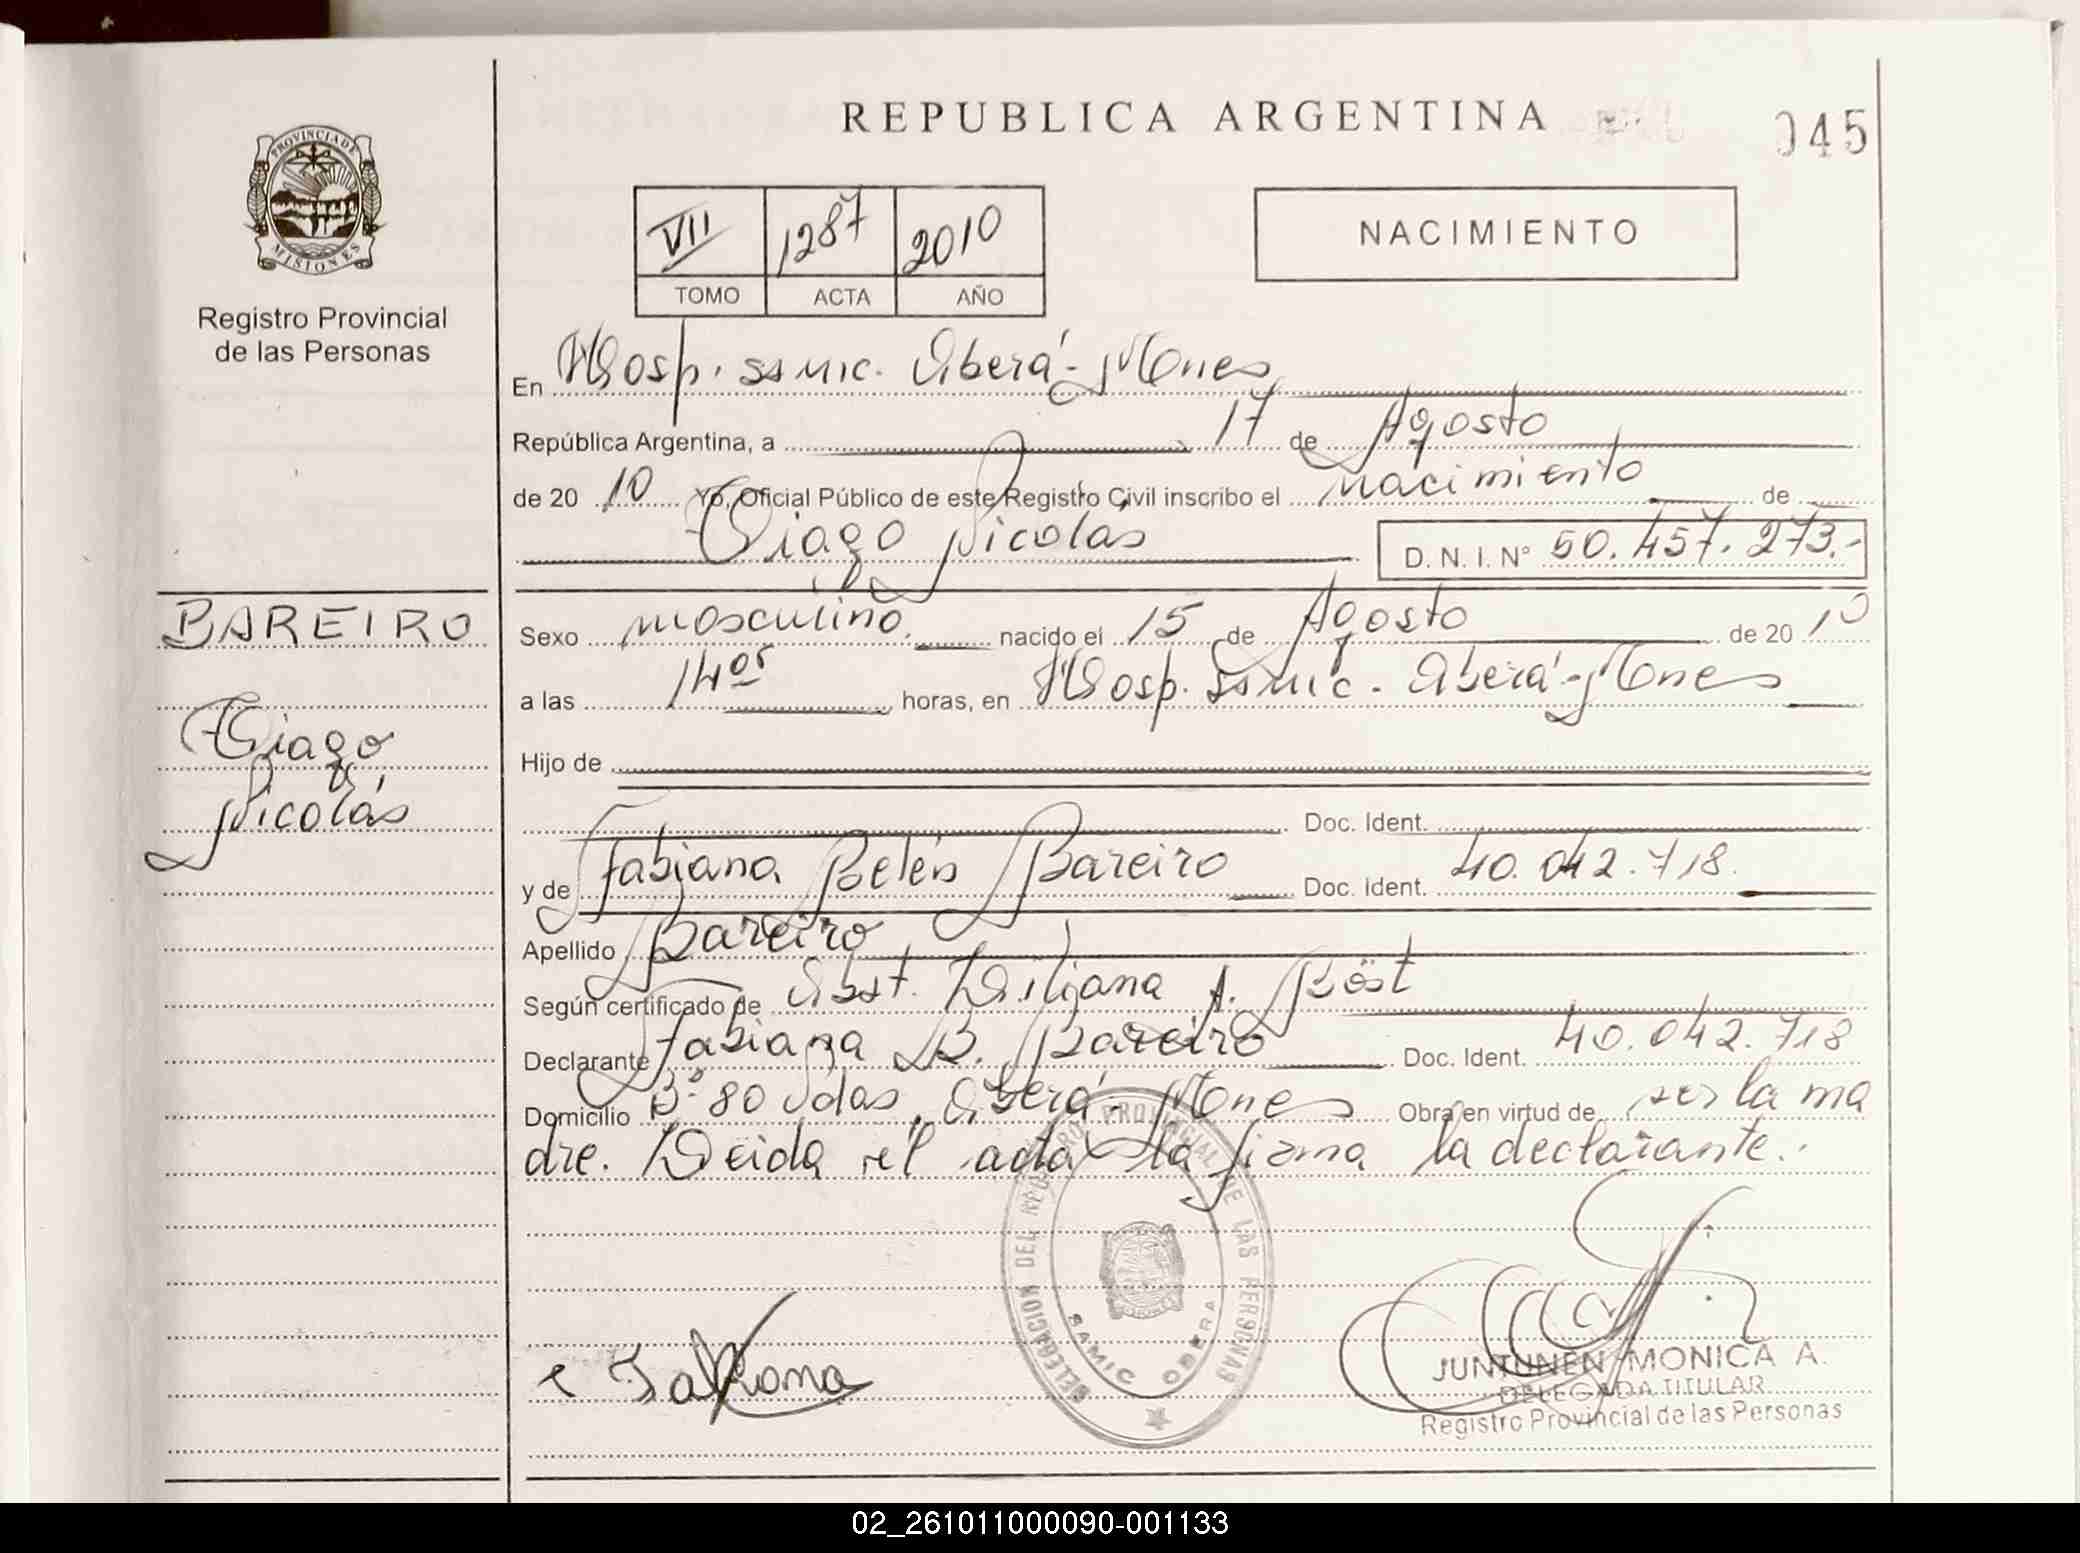 REPUBLICA ARGENTINA
045
PROVINCIA DE
MISIONES
Registro Provincial
de las Personas
VII 1287 2010
TOMO ACTA AÑO
NACIMIENTO
En Hosp. ssmic. Oberá - Mnes
República Argentina, a 17 de Agosto
de 20 10 Yo, Oficial Público de este Registro Civil inscribo el nacimiento de
Tiago Nicolás D. N. I. N° 50.457.273.-
BAREIRO
Tiago
Nicolás
Sexo masculino. nacido el 15 de Agosto de 20 10
a las 14 05 horas, en Hosp. ssmic. Oberá - Mnes
Hijo de
Doc. Ident.
y de Fabiana Belén Bareiro Doc. Ident. 40.042.718.
Apellido Bareiro
Según certificado de Obst. Liliana A. Böst
Declarante Fabiana B. Bareiro Doc. Ident. 40.042.718
Domicilio B° 80 vdas, Oberá - Mnes Obra en virtud de ser la ma
dre. Leida el acta la firma la declarante.
DELEGACION DEL REGISTRO PROVINCIAL DE LAS PERSONAS
SAMIC OBERA
JUNTUNEN MONICA A.
DELEGADA TITULAR
Registro Provincial de las Personas
02_261011000090-001133